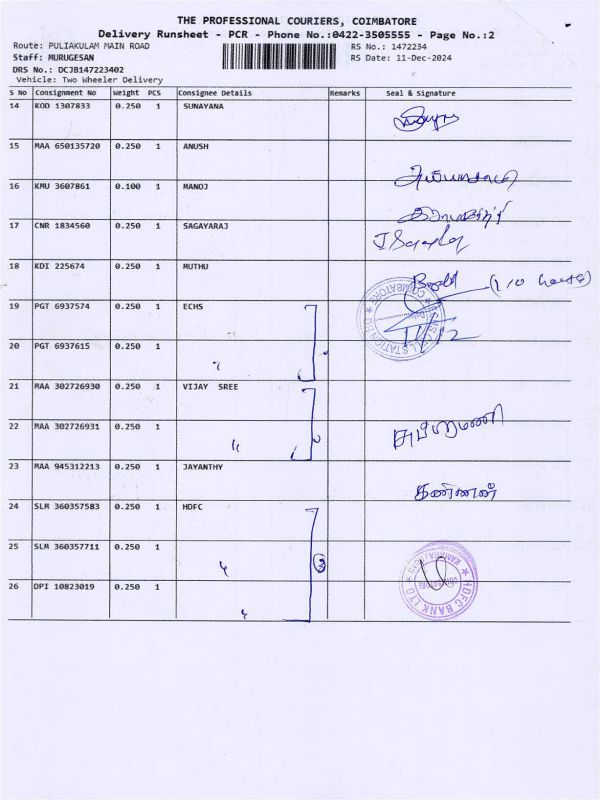 THE PROFESSIONAL COURIERS, COIMBATORE
Delivery Runsheet - PCR - Phone No.:0422-3505555 - Page No.:2
Route: PULIAKULAM MAIN ROAD RS No.: 1472234
Staff: MURUGESAN RS Date: 11-Dec-2024
DRS No.: DCJB147223402
Vehicle: Two Wheeler Delivery
S No Consignment No Weight PCS Consignee Details Remarks Seal & Signature
14 KOD 1307833 0.250 1 SUNAYANA
15 MAA 650135720 0.250 1 ANUSH
16 KMU 3607861 0.100 1 MANOJ
17 CNR 1834560 0.250 1 SAGAYARAJ
18 KDI 225674 0.250 1 MUTHU
19 PGT 6937574 0.250 1 ECHS
20 PGT 6937615 0.250 1 "
21 MAA 302726930 0.250 1 VIJAY SREE
22 MAA 302726931 0.250 1 "
23 MAA 945312213 0.250 1 JAYANTHY
கண்ணன்
24 SLM 360357583 0.250 1 HDFC
25 SLM 360357711 0.250 1 " 3
26 DPI 10823019 0.250 1 "
HDFC BANK LTD